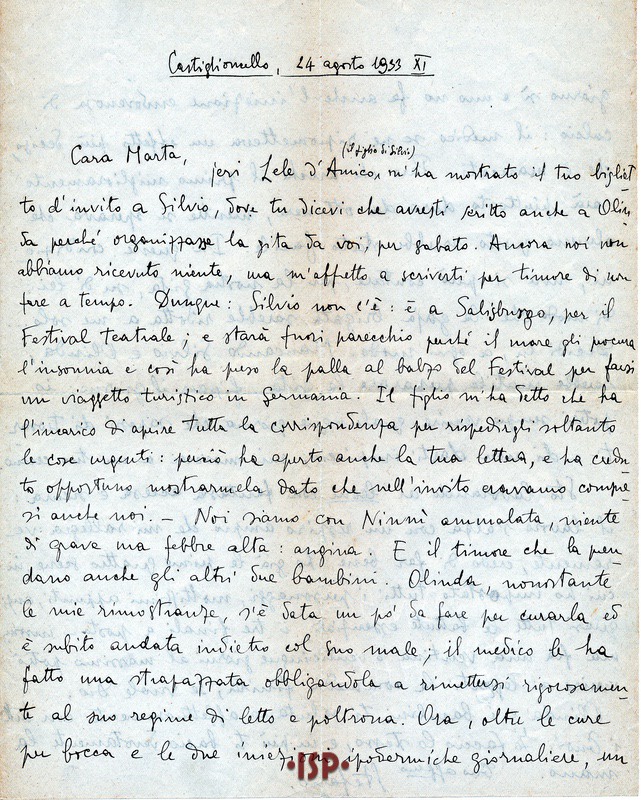 Castiglioncello, 24 agosto 1933 XI
Cara Marta,
(il figlio di Silvio)
jeri Lele d'Amico, m'ha mostrato il tuo bigliet
to d'invito a Silvio, dove tu dicevi che avresti scritto anche a Olin
da perché organizzasse la gita da voi, per sabato. Ancora noi non
abbiamo ricevuto niente, ma m'affretto a scriverti per timore di non
fare a tempo. Dunque: Silvio non c'è: è a Salisburgo, per il
Festival Teatrale; e starà fuori parecchio perché il mare gli procura
l'insonnia e così ha preso la palla al balzo del Festival per farsi
un viaggetto turistico in Germania. Il figlio m'ha detto che ha
l'incarico di aprire tutta la corrispondenza per rispedirgli soltanto
le cose urgenti: perciò ha aperto anche la tua lettera, e ha credu
to opportuno mostrarmela, dato che nell'invito eravamo compre
si anche noi. — Noi siamo con Ninnì ammalata, niente
di grave ma febbre alta: angina. E il timore che la pren
dano anche gli altri due bambini. Olinda, nonostante
le mie rimostranze, s'è data un po' da fare per curarla ed
è subito andata indietro col suo male; il medico le ha
fatto una strapazzata obbligandola a rimettersi rigorosamen
te al suo regime di letto e poltrona. Ora, oltre le cure
per bocca e le due iniezioni ipodermiche giornaliere, un
•ISP•